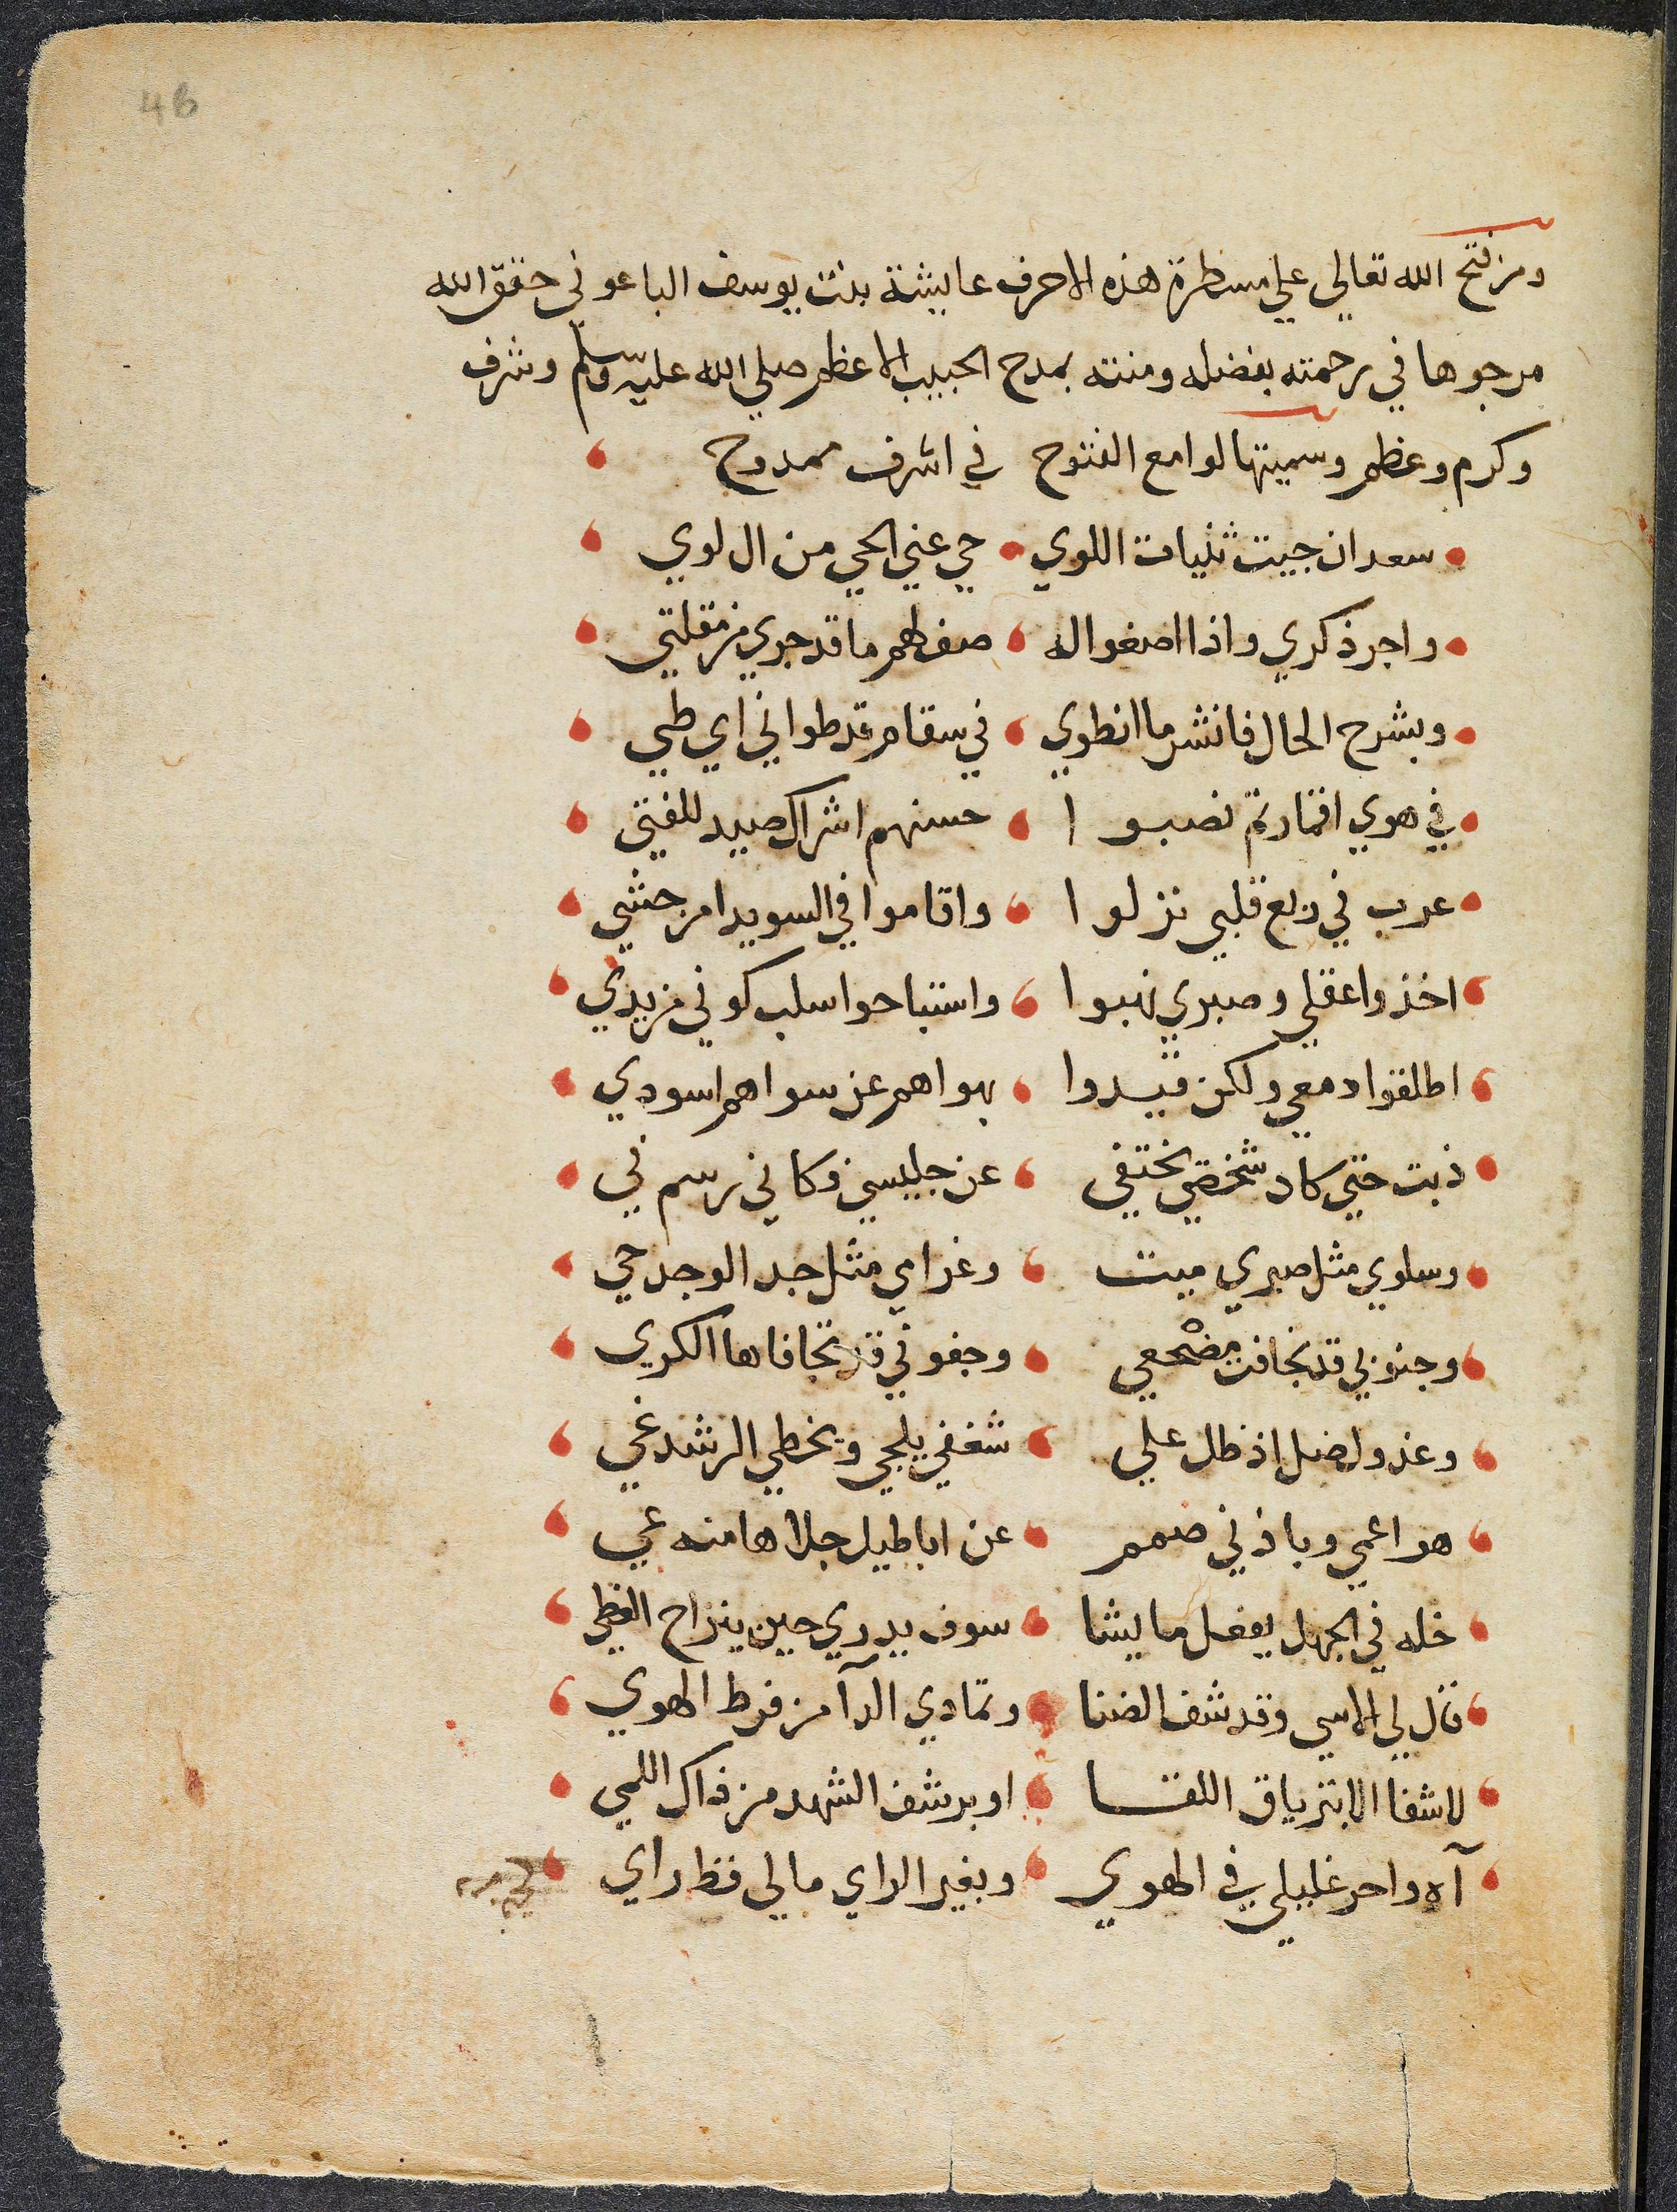 4b
ومن فتح الله تعالي علي مسطرة هذه الاحرف عايشة بنت يوسف الباعوني حقق الله
مرجوها في رحمته بفضله ومنته بمدح الحبيب الاعظم صلي الله عليه وسلم وشرف
وكرم وعظم وسميتها لوامع الفتوح في اشرف ممدوح
سعد ان جيت ثنيات اللوي حي عني الحي من ال لوي
واجر ذكري واذا اصغوا له صف لهم ما قد جري من مقلتي
وبشرح الحال فانشر ما انطوي في سقام قد طواني اي طي
في هوي اقمار تم نصبوا حسنهم اشراك صيد للفتي
عرب في ربع قلبي نزلوا واقاموا في السويدا من حشي
اخذوا عقلي وصبري نهبوا واستباحوا سلب كوني من يدي
اطلقوا دمعي ولكن قيدوا بهواهم عن سواهم اسودي
ذبت حتي كاد شخصي يختفي عن جليسي وكاني رسم في
وسلوي مثل صبري ميت وغرامي مثل جد الوجد حي
وجنوبي قد تجافت مضجعي وجفوني قد تجافاها الكري
وعذول ضل اذ ظل علي شغفي يلحي ويخطي الرشد غي
هو اعمي وباذني صمم عن اباطيل جلاها منه عي
خله في الجهل يفعل ما يشا سوف يدري حين ينزاح الغطي
قال لي الاسي وقد شف الضنا وتمادي الدآ من فرط الهوي
لا شفا الا بترياق اللقا او برشف الشهد من ذاك اللمي
آه واحر غليلي في الهوي وبغير الراي مالي قط راي